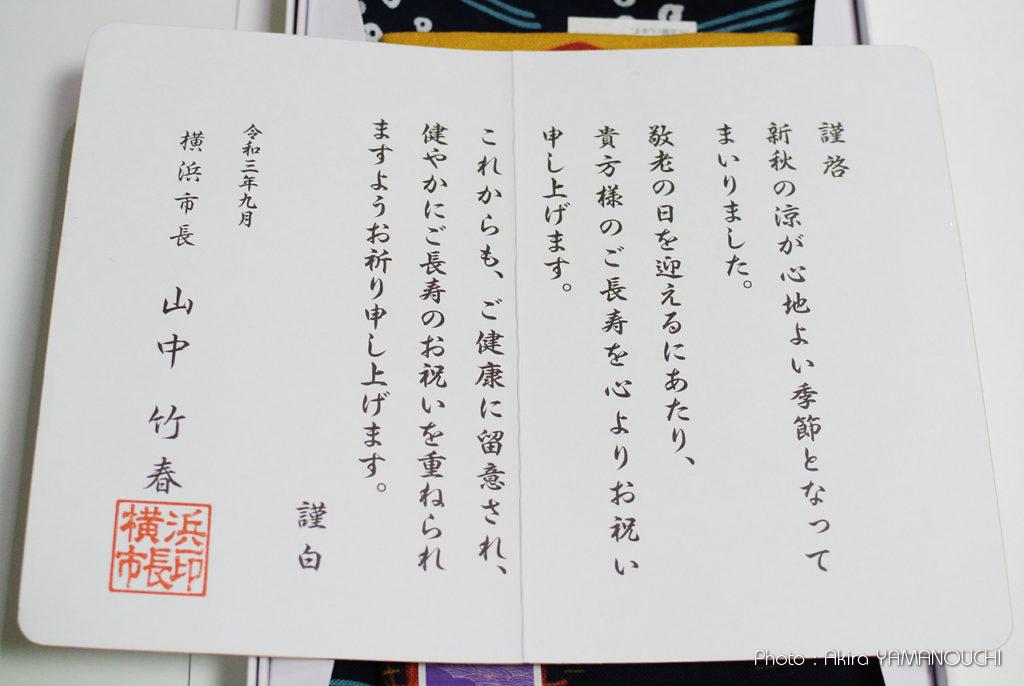 謹啓
新秋の涼が心地よい季節となって
まいりました。
敬老の日を迎えるにあたり、
貴方様のご長寿を心よりお祝い
申し上げます。
これからも、ご健康に留意され、
健やかにご長寿のお祝いを重ねられ
ますようお祈り申し上げます。
謹白
令和三年九月
横浜市長 山中竹春
横浜市長印
Photo : Akira YAMANOUCHI